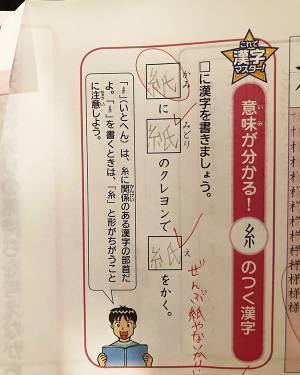 これで漢字マスター!
意味が分かる! 糸 のつく漢字
いみ
□に漢字を書きましょう。
紙に紙のクレヨンで紙をかく。
かみ みどり え
ぜんぶ紙やないかーい
「糹」(いとへん)は、糸に関係のある漢字の部首だ
かんけい
よ。「糹」を書くときは、「糸」と形がちがうこと
に注意しよう。
ちゅうい